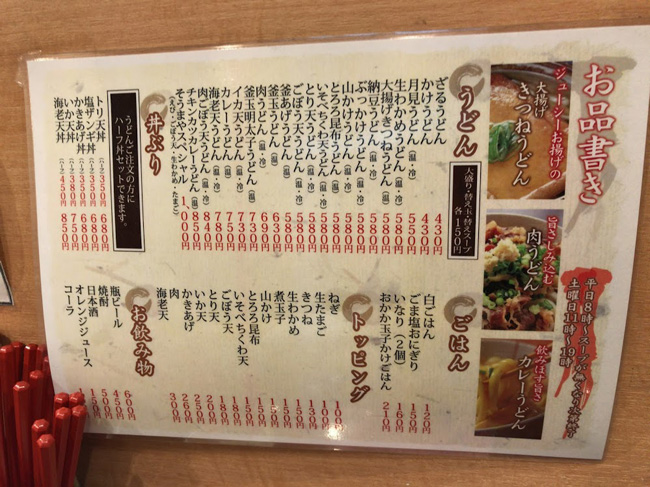 お品書き
ジューシーお揚げの
大揚げ
きつねうどん
旨さしみ込む
肉うどん
飲みほす旨さ
カレーうどん
平日8時〜スープが無くなり次第終了
土曜日11時〜19時
うどん
大盛り・替え玉・替えスープ
各150円
ざるうどん 430円
かけうどん 430円
月見うどん 550円
生わかめうどん
大揚げきつねうどん 580円
納豆うどん 580円
ぶっかけうどん 580円
山かけうどん 580円
とろろ昆布うどん 580円
いそべちくわ天うどん
とり天うどん
ごぼう天うどん
釜あげうどん 580円
釜玉うどん 630円
肉うどん 690円
釜玉明太子うどん
イカ天うどん
カレーうどん
海老天うどん
肉ごぼう天うどん
チキンカツカレーうどん
そうまやスペシャル 1,000円
(えび・ごぼう・とり天・生わかめ・たまご)
丼ぶり
うどんご注文の方に
ハーフ丼セットできます。
トリ天丼 (ハーフ) 350円 680円
塩ザンギ丼 (ハーフ) 350円 680円
かきあげ丼 (ハーフ) 350円 680円
いか天丼 750円
海老天丼 (ハーフ) 450円 850円
ごはん
白ごはん 120円
ごま塩おにぎり 150円
いなり(2個) 160円
おかか玉子かけごはん 210円
トッピング
ねぎ 100円
生たまご 100円
きつね
生わかめ 150円
煮玉子 150円
山かけ 150円
とろろ昆布 150円
いそべちくわ天
ごぼう天
とり天
いか天 200円
かきあげ 250円
肉 260円
海老天 300円
お飲み物
瓶ビール 600円
焼酎 450円
日本酒 500円
オレンジジュース 150円
コーラ